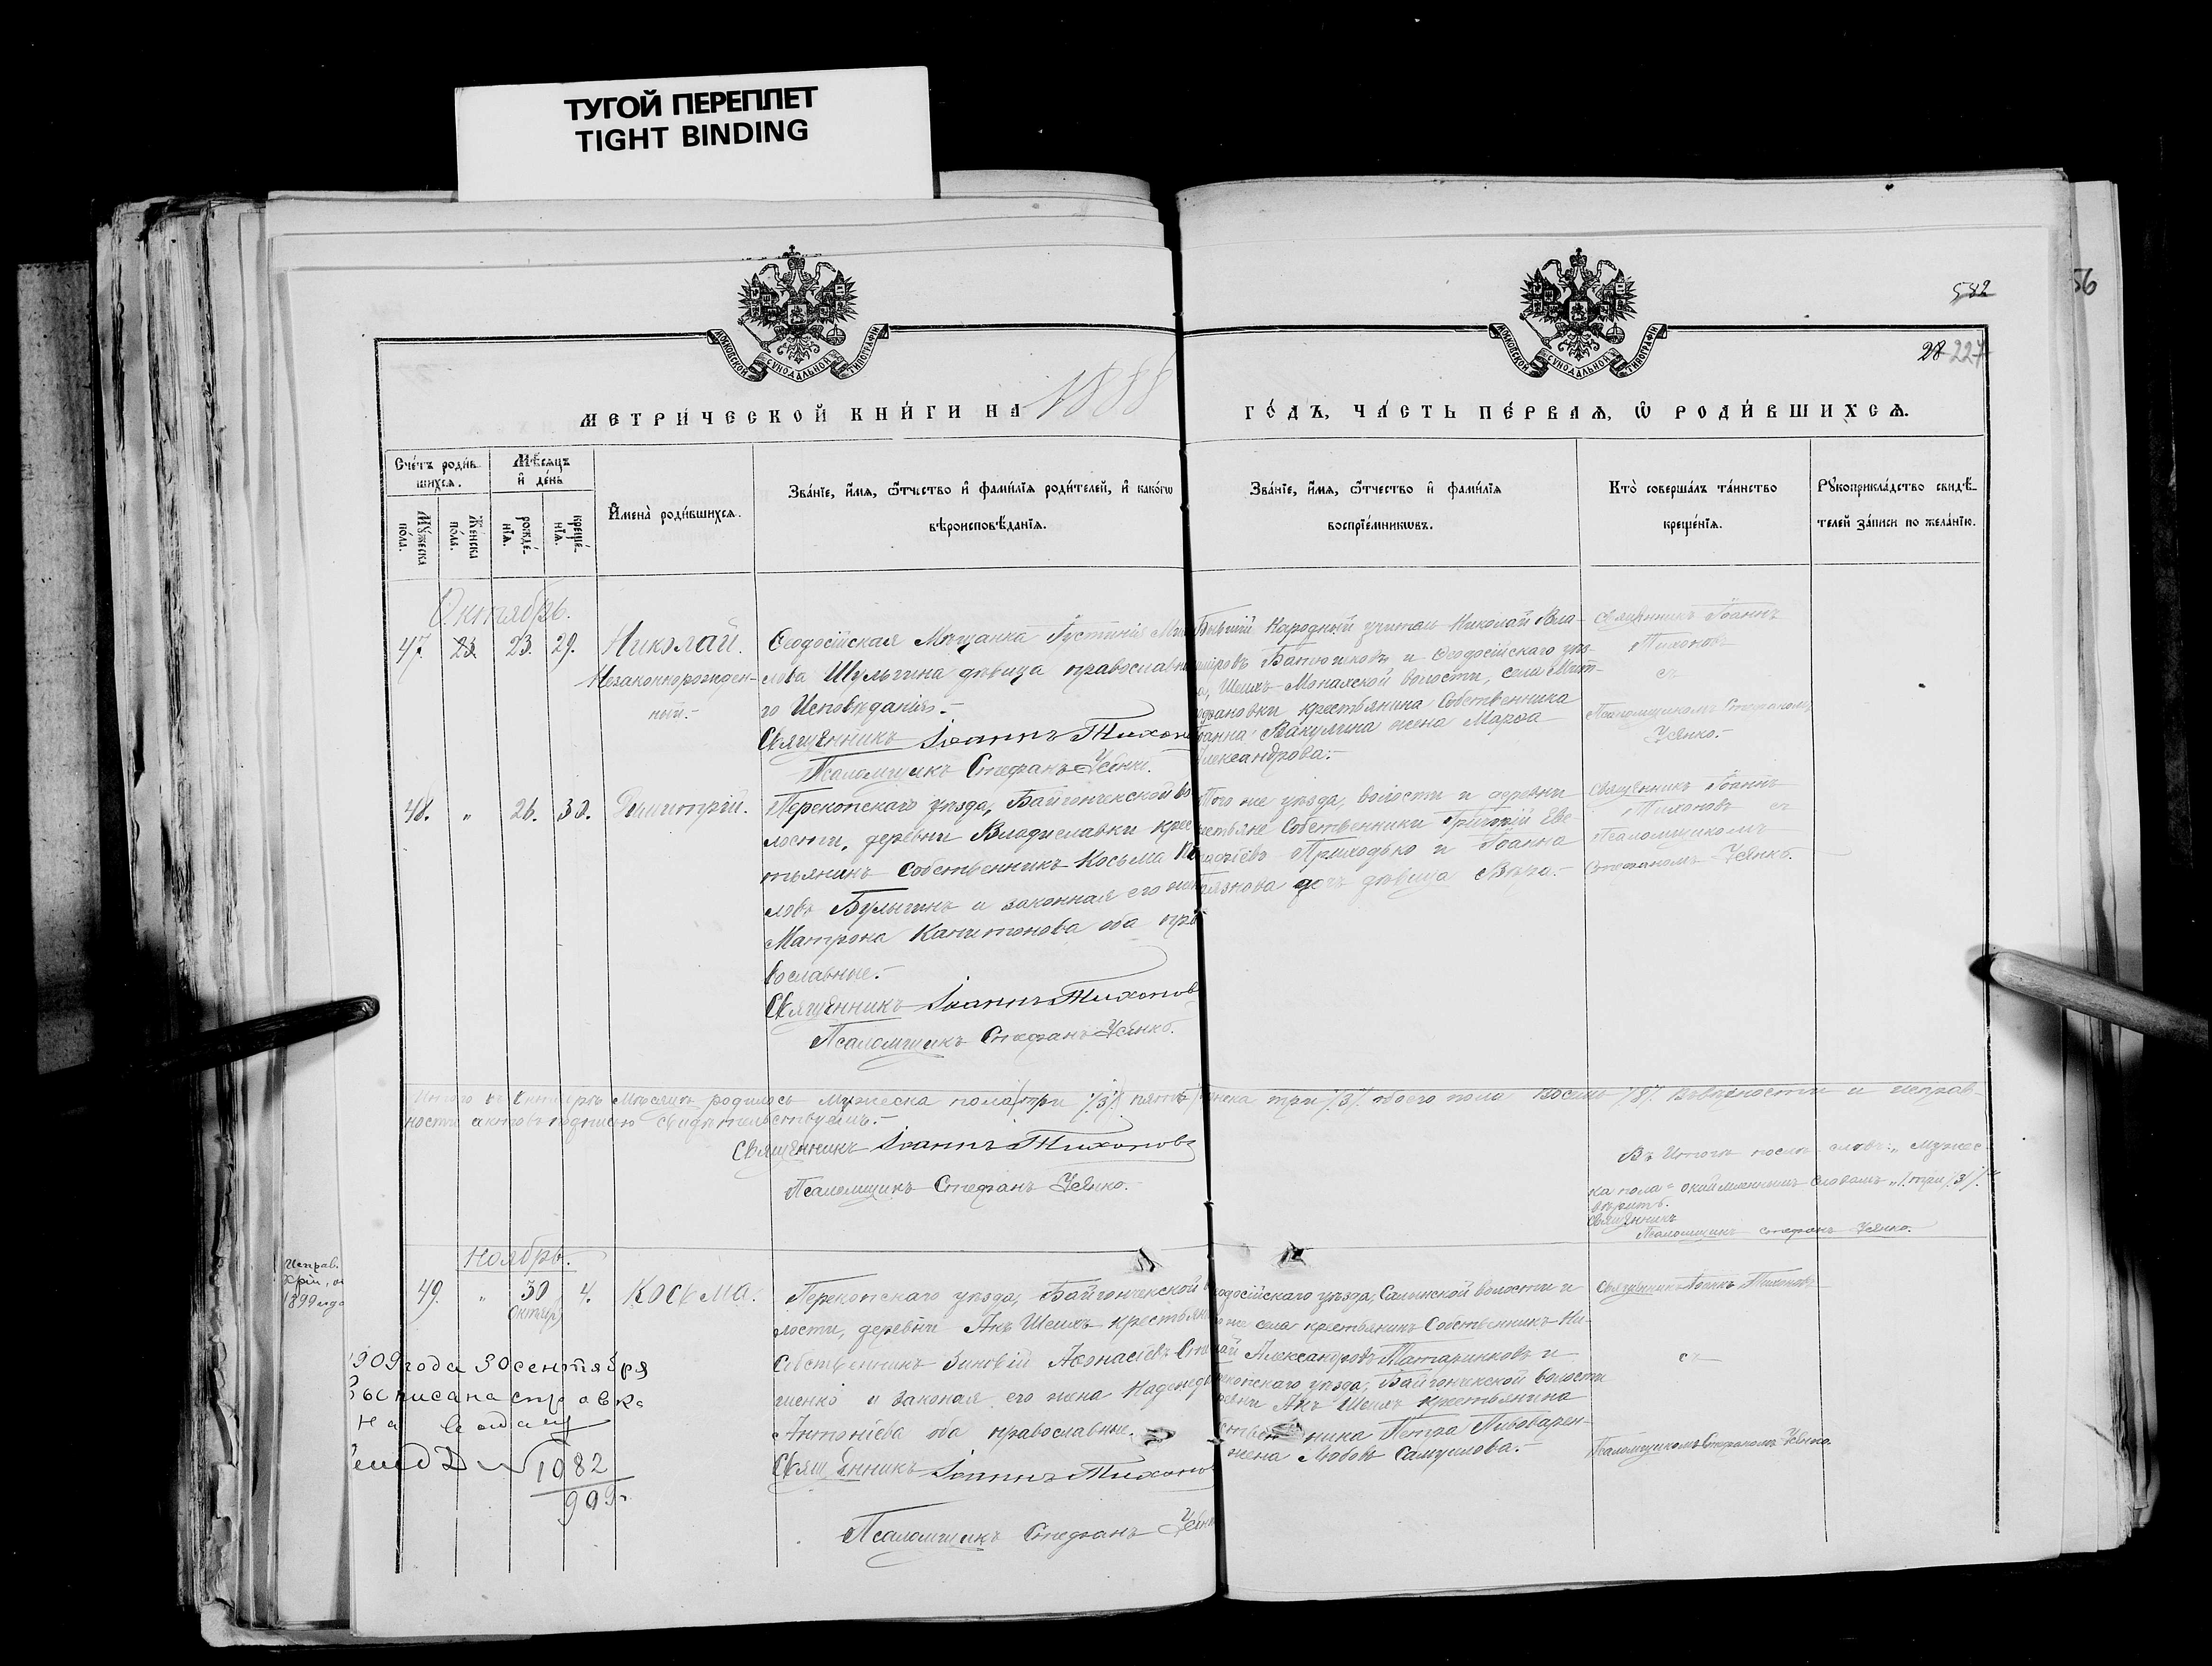 ТУГОЙ ПЕРЕПЛЕТ
TIGHT BINDING
56
542
28 227
МОСКОВСКОЙ СѴНОДАЛЬНОЙ ТИПОГРАФІИ
МОСКОВСКОЙ СѴНОДАЛЬНОЙ ТИПОГРАФІИ
МЕТРИ́ЧЕСКОЙ КНИ́ГИ НА 1888 ГО́ДЪ, ЧА́СТЬ ПЕ́РВАѦ, Ѡ РОДИ́ВШИХСѦ.
Сче́тъ роди́в-
шихсѧ.
Мѣ́сѧцъ
и҆ де́нь
И҆мена̀ роди́вшихсѧ.
Зва́нїе, и҆́мѧ, ѻ҆́тчество и҆ фами́лїѧ роди́телей, и҆ како́гѡ
вѣроисповѣ́данїѧ.
Зва́нїе, и҆́мѧ, ѻ҆́тчество и҆ фами́лїѧ
воспрїе́мникѡвъ.
Кто̀ соверша́лъ та́инство
креще́нїѧ.
Рꙋкоприкла́дство свидѣ́-
телей за́писи по жела́нїю.
Мꙋ́жеска по́ла.
Же́нска по́ла.
рожде́-нїѧ.
креще́-нїѧ.
Октябрь.
47. 23 23. 29. Николай.
Незаконнорожден-
ный.-
Ѳеодосійская Мѣщанка Іустинія
лова Шульгина дѣвица православна
го Исповѣданія.-
Священникъ Іоаннъ Тихон
Псаломщикъ Стефанъ Усенко.
Бывшій Народный учитель Николай Вла-
диміровъ и Ѳеодосійскаго уѣз-
а, Шеихъ-Монахской волости, села Мит-
рофановки крестьянина Собственника
Іоанна Вакулина жена Марѳа
Александрова.-
Священникъ Іоаннъ
Тихоновъ
съ
Псаломщикомъ Стефаномъ
Усенко.-
48. " 26. 30. Димитрій.
Перекопскаго уѣзда, Байгончекской во
лости, деревни Владиславки крес
тьянинъ Собственникъ Косьма
ловъ Булыгинъ и законная его жен
Матрона Капитонова оба пра
вославные.-
Священникъ Іоаннъ Тихонов
Псаломщикъ Стефанъ Усенко.
Того же уѣзда, волости и деревни
крестьяне Собственники Григорій Ев-
Приходько и Іоанна
дочь дѣвица Вѣра.-
Священникъ Іоаннъ
Тихоновъ съ
Псаломщикомъ
Стефаномъ Усенко.
Итого въ Октябрѣ Мѣсяцѣ родилось Мужеска пола (три /3/) пять женска три /3/ обоего пола восемь /8/ Въ вѣрности и исправ-
ности актовъ подписью свидѣтельствуемъ.-
Священникъ Іоаннъ Тихоновъ
Псаломщикъ Стефанъ Усенко.
Въ Итогѣ послѣ словъ: "мужес-
ка пола" окаймленнымъ словамъ "три /3/"
вѣрить.
Священникъ
Псаломщикъ Стефанъ Усенко.
Ноябрь.
49. " 30 4. Косьма.
Октябр
Перекопскаго уѣзда, Байгончекской в
лости, деревни Акъ Шеихъ крестьян
Собственникъ Зиновій Аѳонасіевъ
шенко и законая его жена Надежд
Антоніева оба православные.
Священникъ Іоаннъ Тихоно
Псаломщикъ Стефанъ Усенк
одосійскаго уѣзда, Салынской волости и
о же села крестьянинъ Собственникъ Ни-
лай Александровъ Татаринковъ и
екопскаго уѣзда, Байгончекской волости
ревни Акъ Шеихъ крестьянина
бственника Петра Пивоварен-
жена Любовь Самуилова.-
Священникъ Іоаннъ Тихоновъ
съ
Псаломщикомъ Стефаномъ Усенко.
Исправ.
1899 года
1909 года 30 сентября
Выписана справка
на
1082
909г.